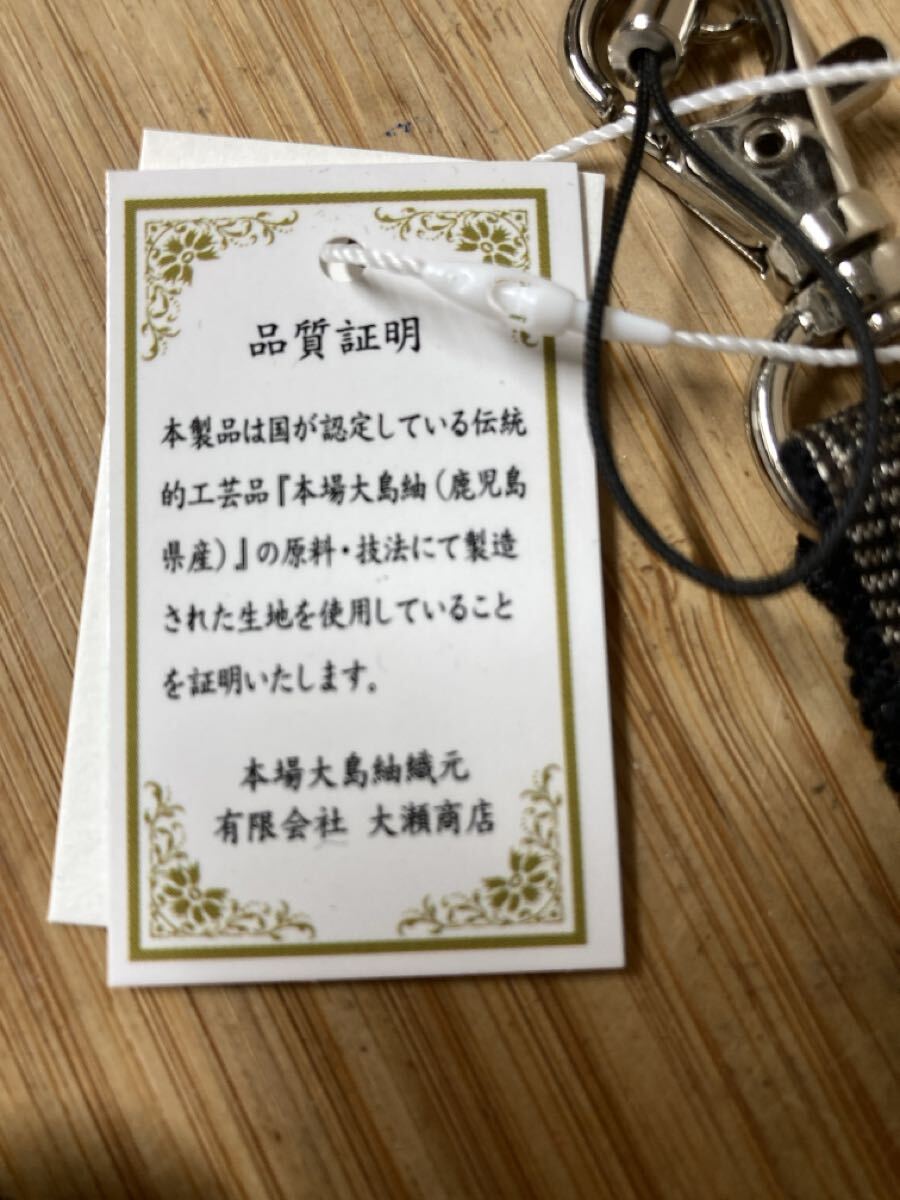 品質証明
本製品は国が認定している伝統
的工芸品『本場大島紬（鹿児島
県産）』の原料・技法にて製造
された生地を使用していること
を証明いたします。
本場大島紬織元
有限会社 大瀬商店